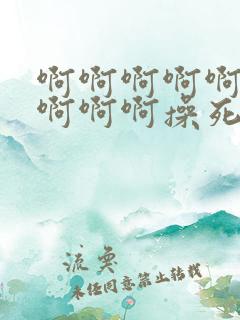 啊啊啊啊啊
啊啊啊操死
流云
未经同意禁止转载